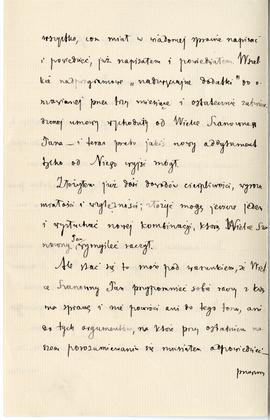 wszystko, com miał w wiadomej sprawie napisać
i powiedzieć, już napisałem i powiedziałem. Wszel-
kie nadprogramowe „nadzwyczajne dodatki" do o-
mawianej przez trzy miesiące i ostatecznie zatwier-
dzonej umowy wychodziły od Wielce Szanownego
Pana — i teraz przeto jakiś nowy addytament
tylko od Niego wyjść mógł.
Złożyłem już dość dowodów cierpliwości, wyrozu-
miałości i względności; złożyć mogę jeszcze jeden
i wysłuchać nowej kombinacji, którą Wielce Sza-
nowny Pan wymyśleć raczył.
Ale stać się to może pod warunkiem, że Wiel-
ce Szanowny Pan przypomnieć sobie raczy z kim
ma sprawę i nie powróci ani do tego tonu, ani
do tych argumentów, na które przy ostatniem na-
szem porozumiewaniu się musiałem odpowiedzieć